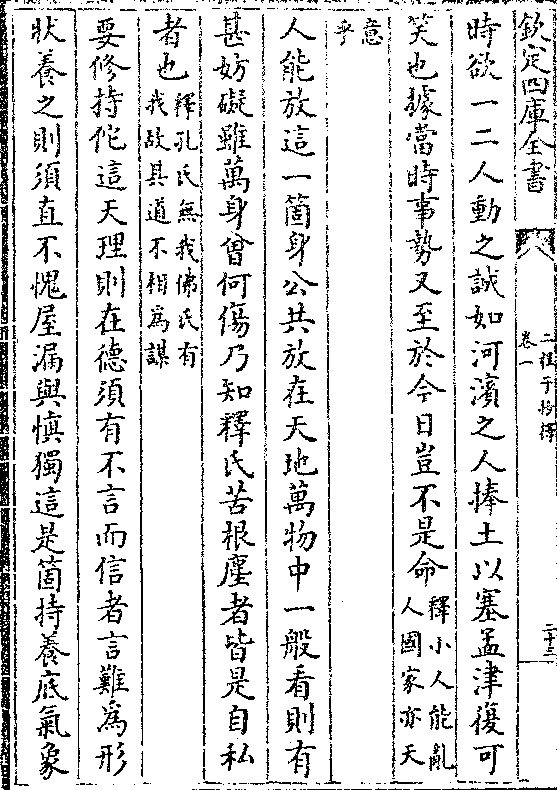 欽定四庫全書
卷一
二程子抄釋
二十三
時欲一二人動之誠如河濱之人捧土以塞孟津復可
笑也據當時事勢又至於今日豈不是命釋小人能亂人國家亦天
意乎
人能放這一箇身公共放在天地萬物中一般看則有
甚妨礙雖萬身曾何傷乃知釋氏苦根塵者皆是自私
者也釋孔氏無我佛氏有我故其道不相為謀
要修持佗這天理則在德須有不言而信者言難為形
狀養之則須直不愧屋漏與慎獨這是箇持養底氣象